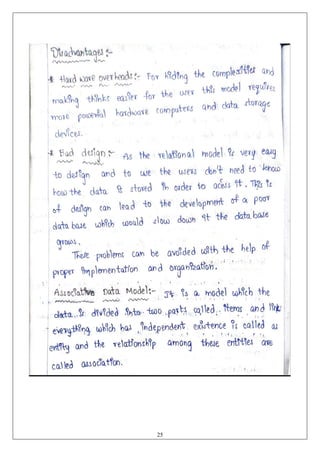 Disadvantages:-
* Hard ware overheads:- For hiding the complexities and
making thinks easier for the user this model requires
more powerful hardware computers and data storage
devices.
* Bad design:- As the relational model is very easy
to design and to use the users don't need to know
how the data is stored in order to acess it. This is
of design can lead to the development of a poor
data base which would slow down it the data base
grows.
These problems can be avoided with the help of
proper implementation and organisation.
Associative Data Model:- It is a model which the
data is divided into two parts called. items and link
everything which has independent existence is called as
entity and the relationship among these entities are
called association.
25